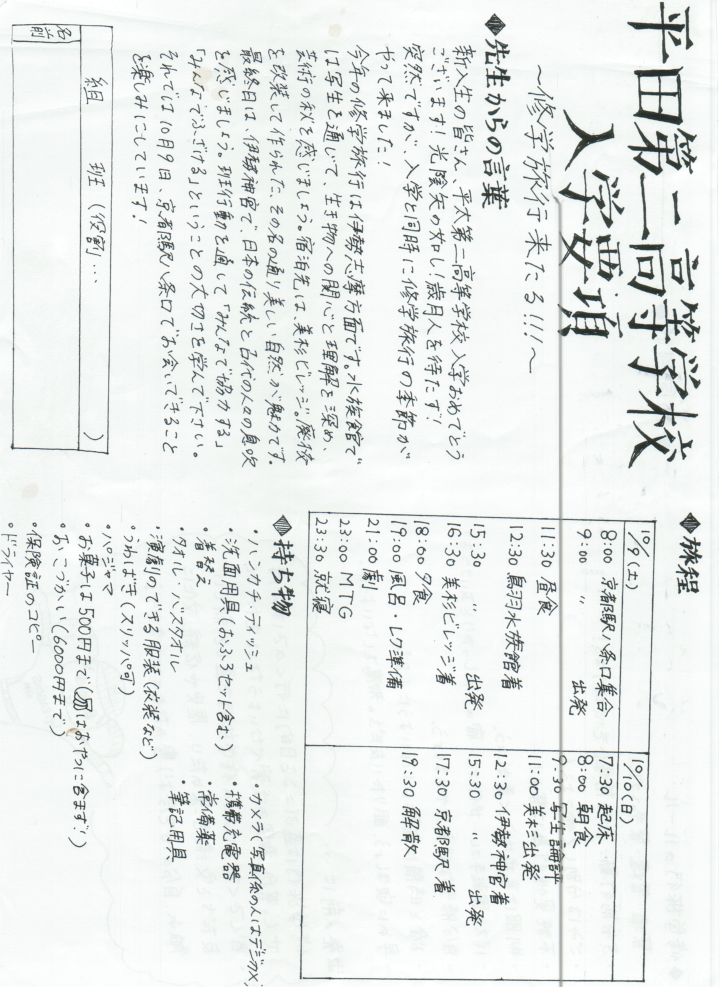 平田第二高等学校
入学要項
〜修学旅行来たる!!!〜
◆先生からの言葉
新入生の皆さん、平太第二高等学校入学おめでとう
ございます!光陰矢の如し!歳月人を待たず!
突然ですが、入学と同時に修学旅行の季節が
やって来ました!
今年の修学旅行は伊勢志摩方面です。水族館で
は写生を通じて、生き物への関心と理解を深め、
芸術の秋を感じましょう。宿泊先は、美杉ビレッジ。廃校
を改装して作られた、その名の通り美しい自然が魅力です。
最終日は、伊勢神宮で、日本の伝統と古代の人々の息吹
を感じましょう。班行動を通して「みんなで協力する」
「みんなでふざける」ということの大切さを学んで下さい。
それでは10月9日、京都駅八条口でお会いできること
を楽しみにしています!
名前
組 班(役割… )
◆旅程
10/9(土)
8:00 京都駅八条口集合
9:00 〃 出発
11:30 昼食
12:30 鳥羽水族館着
15:30 〃 出発
16:30 美杉ビレッジ着
18:00 夕食
19:00 風呂・レク準備
21:00 劇
23:00 MTG
23:30 就寝
10/10(日)
7:30 起床
8:00 朝食
9:30 写生論評
11:00 美杉出発
12:30 伊勢神宮着
15:30 〃 出発
17:30 京都駅着
19:30 解散
◆持ち物
・ハンカチ・ティッシュ
・洗面用具(おふろセット含む)
・着替え
・タオル・バスタオル
・演劇のできる服装(体装など)
・うわばき(スリッパ可)
・パジャマ
・お菓子は500円まで(はおやつに含ます!)
・おこづかい(6000円まで)
・保険証のコピー
・ドライヤー
・カメラ(写真係の人はデジカメ)
・携帯充電器
・常備薬
・筆記用具